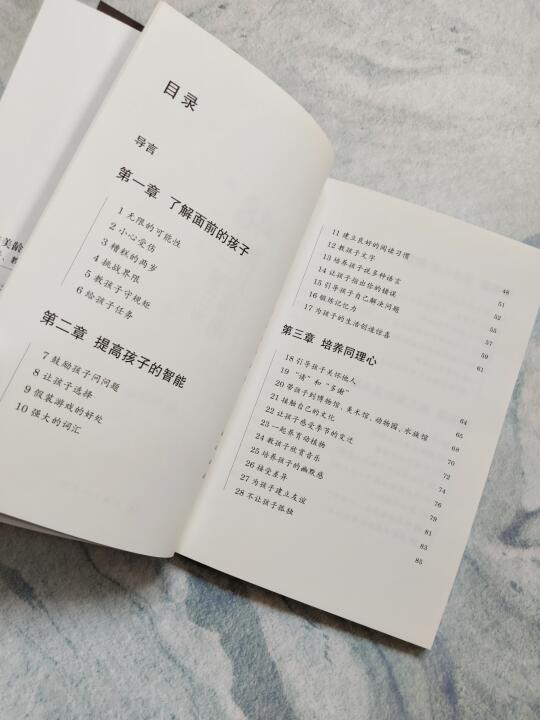 目录
导言
第一章 了解面前的孩子
1 无限的可能性
2 小心受伤
3 糟糕的两岁
4 挑战界限
5 教孩子守规矩
6 给孩子任务
第二章 提高孩子的智能
7 鼓励孩子问问题
8 让孩子选择
9 假装游戏的好处
10 强大的词汇
11 建立良好的阅读习惯 48
12 教孩子文字 51
13 培养孩子说多种语言 52
14 让孩子指出你的错误 55
15 引导孩子自己解决问题 57
16 锻炼记忆力 59
17 为孩子的生活创造惊喜 61
第三章 培养同理心
18 引导孩子关怀他人 64
19 “请”和“多谢” 65
20 带孩子到博物馆、美术馆、动物园、水族馆 68
21 接触自己的文化 70
22 让孩子感受季节的变迁 72
23 一起养育动植物 74
24 教孩子欣赏音乐 76
25 培养孩子的幽默感 79
26 接受差异 81
27 为孩子建立友谊 83
28 不让孩子孤独 85
美龄